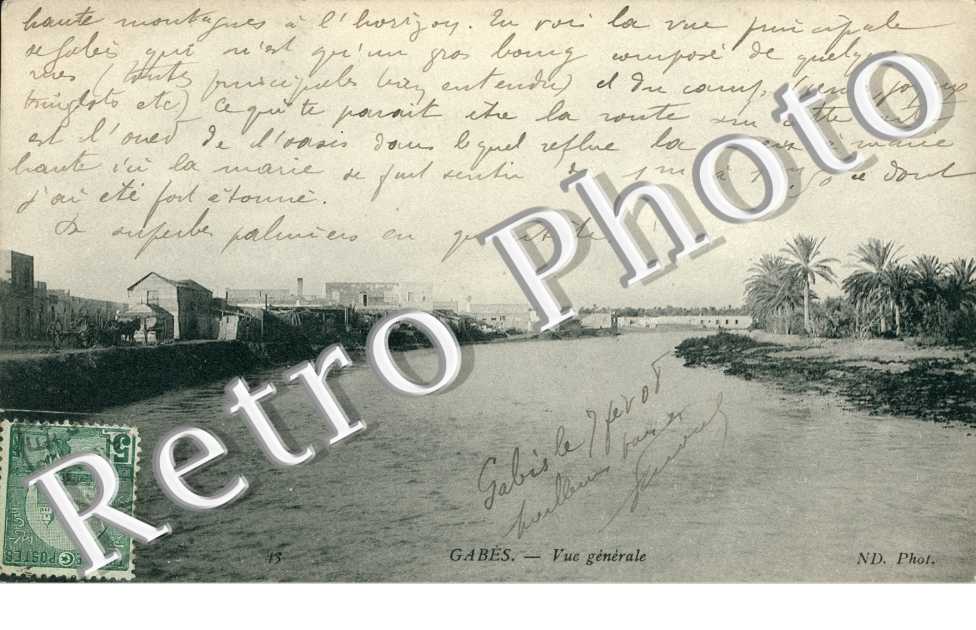 haute montagnes à l'horizon. En voici la vue principale
de Gabès qui n'est qu'un gros bourg composé de quelques
rues (toutes principales bien entendu) et du camp,
tringlots etc) Ce qui te parait être la route sur cette
est l'oued de l'oasis dans lequel reflue la à marée
haute ici la marée se fait sentir ce dont
j'ai été fort étonné.
De superbes palmiers en
Retro Photo
Gabès le 7 fev 08
5
POSTES
15 GABÈS. — Vue générale ND. Phot.